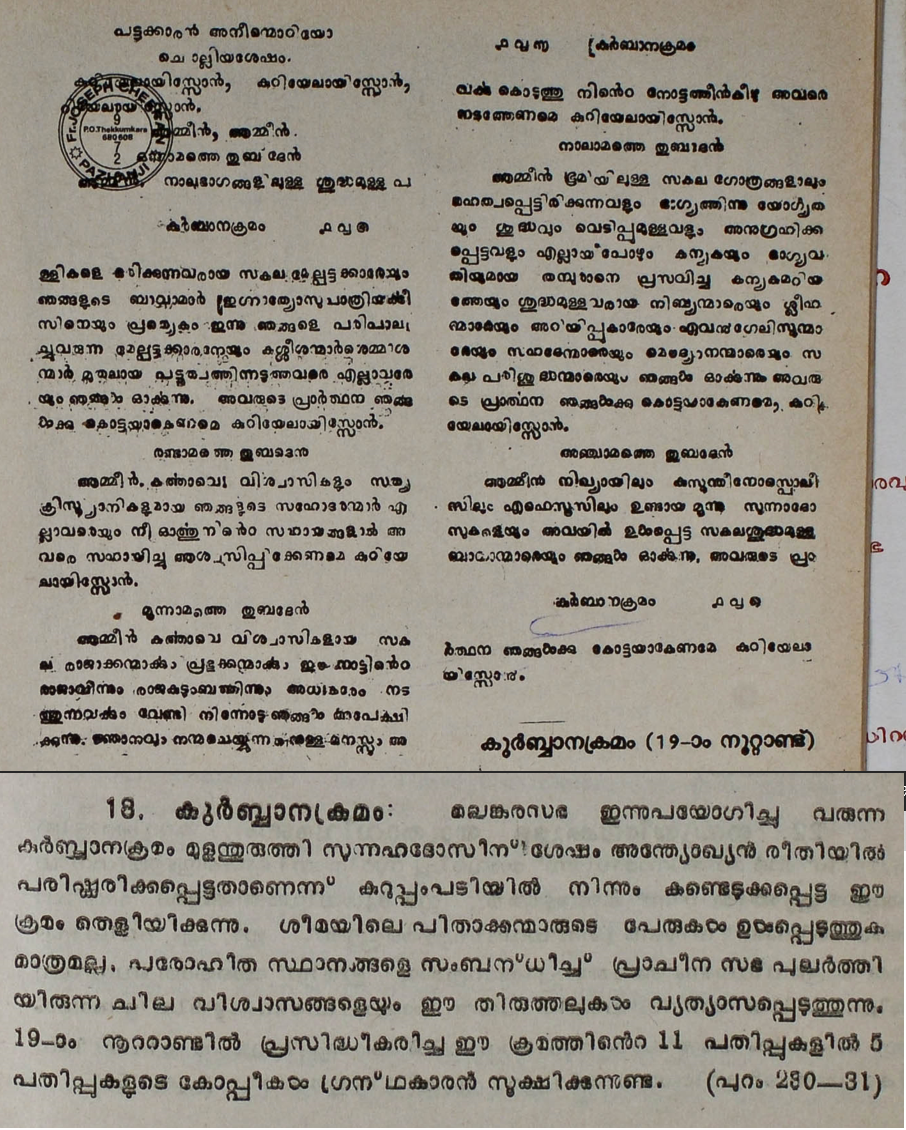 പട്ടക്കാരൻ അനീന്മൊറിയോ
ചൊല്ലിയശേഷം.
കുറിയേലായിസ്സോൻ,
ആമ്മീൻ, ആമ്മീൻ.
ഒന്നാമത്തെ തുബ്ദേൻ
നാലുഭാഗങ്ങളിലുള്ള ശുദ്ധമുള്ള പ
കുർബാനക്രമം ൧൭൧
ള്ളികളെ ഭരിക്കുന്നവരായ സകല മേല്പട്ടക്കാരേയും
ഞങ്ങളുടെ ബാവ്വാമാർ ഇഗ്നാത്യോസുപാത്രിയക്കീ
സിനെയും പ്രത്യേകം ഇന്നു ഞങ്ങളെ പരിപാലി
ച്ചുവരുന്ന മേല്പട്ടക്കാരനേയും കശ്ശീശന്മാർശെമ്മാശ
ന്മാർ മുതലായ പട്ടത്വപത്തിന്നടുത്തവരെ എല്ലാവരേ
യും ഞങ്ങൾ ഓർക്കുന്നു. അവരുടെ പ്രാർത്ഥന ഞങ്ങ
ൾക്കു കൊട്ടയാകെണമെ കുറിയേലായിസ്സോൻ.
രണ്ടാമത്തെ തുബദെൻ
ആമ്മീൻ. കൎത്താവെ വിശ്വാസികളും സത്യ
ക്രിസ്ത്യാനികളുമായ ഞങ്ങളുടെ സഹോദരന്മാർ എ
ല്ലാവരെയും നീ ഓൎത്തു നിൻെറ സഹായങ്ങളാൽ അ
വരെ സഹായിച്ചു ആശ്വസിപ്പിക്കേണമെ കുറിയേ
ലായിസ്സോൻ.
മൂന്നാമത്തെ തുബദേൻ
ആമ്മീൻ കൎത്താവെ വിശ്വാസികളായ സക
ല രാജാക്കന്മാൎക്കും പ്രഭുക്കന്മാൎക്കും ഇക്കാട്ടിൻെറ
രാജാവിന്നും രാജകുടുംബത്തിന്നും അധികാരം നട
ത്തുന്നവൎക്കും വേണ്ടി നിന്നോടു ഞങ്ങൾ അപേക്ഷി
ക്കുന്നു. ജ്ഞാനവും നന്മചെയ്യുന്നതിന്നുള്ള മനസ്സും അ
൧൭൩ കുർബാനക്രമം
വൎക്കു കൊടുത്തു നിൻെറ നോട്ടത്തിൻകീഴ അവരെ
നടത്തേണമെ കുറിയേലായിസ്സോൻ.
നാലാമത്തെ തുബദേൻ
ആമ്മീൻ ഭൂമിയിലുള്ള സകല ഗോത്രങ്ങളാലും
മഹത്വപ്പെട്ടിരിക്കുന്നവളും ഭാഗ്യത്തിന്നു യോഗ്യത
യും ശുദ്ധവും വെടിപ്പുമുള്ളവളും അനുഗ്രഹിക്ക
പ്പെട്ടവളും എല്ലായ്പോഴും കന്യകയും ഭാഗ്യവ
തിയുമായ തമ്പുരാനെ പ്രസവിച്ച കന്യകമറിയ
ത്തേയും ശുദ്ധമുള്ളവരായ നിബ്യന്മാരെയും ശ്ലീഹ
ന്മാരേയും അറിയിപ്പുകാരേയും ഏവൻഗേലിസ്ഥന്മാ
രേയും സഹദേന്മാരെയും മൌദ്യാനന്മാരെയും സ
കല പരിശുദ്ധന്മാരെയും ഞങ്ങൾ ഓർക്കുന്നു അവരു
ടെ പ്രാൎത്ഥന ഞങ്ങൾക്കു കൊട്ടയാകേണമെ, കുറി
യേലായിസ്സോൻ.
അഞ്ചാമത്തെ തുബദേൻ
ആമ്മീൻ നിഖ്യായിലും കുസ്തന്തീനോസ്പൊലീ
സിലും എഫെസൂസിലും ഉണ്ടായ മൂന്നു സുന്നഹദോ
സുകളെയും അവയിൽ ഉൾപ്പെട്ട സകലശുദ്ധമുള്ള
ബാവാന്മാരെയും ഞങ്ങൾ ഓർക്കുന്നു. അവരുടെ പ്രാ
കുർബാനക്രമം ൧൭൧
ൎത്ഥന ഞങ്ങൾക്കു കോട്ടയാകേണമേ കുറിയേലാ
യിസ്സോൻ.
കുർബ്ബാനക്രമം (19-ാം നൂറ്റാണ്ട്)
18. കുർബ്ബാനക്രമം: മലങ്കരസഭ ഇന്നുപയോഗിച്ചു വരുന്ന
കുർബ്ബാനക്രമം മുളന്തുരുത്തി സുന്നഹദോസിന് ശേഷം അന്ത്യോഖ്യൻ രീതിയിൽ
പരിഷ്ക്കരിക്കപ്പെട്ടതാണെന്ന് കുറുപ്പംപടിയിൽ നിന്നും കണ്ടെടുക്കപ്പെട്ട ഈ
ക്രമം തെളിയിക്കുന്നു. ശീമയിലെ പിതാക്കന്മാരുടെ പേരുകൾ ഉൾപ്പെടുത്തുക
മാത്രമല്ല, പുരോഹിത സ്ഥാനങ്ങളെ സംബന്ധിച്ച് പ്രാചീന സഭ പുലർത്തി
യിരുന്ന ചില വിശ്വാസങ്ങളെയും ഈ തിരുത്തലുകൾ വ്യത്യാസപ്പെടുത്തുന്നു.
19-ാം നൂററാണ്ടിൽ പ്രസിദ്ധീകരിച്ച ഈ ക്രമത്തിൻെറ 11 പതിപ്പുകളിൽ 5
പതിപ്പുകളുടെ കോപ്പികൾ ഗ്രന്ഥകാരൻ സൂക്ഷിക്കുന്നുണ്ട. (പുറം 230—31)